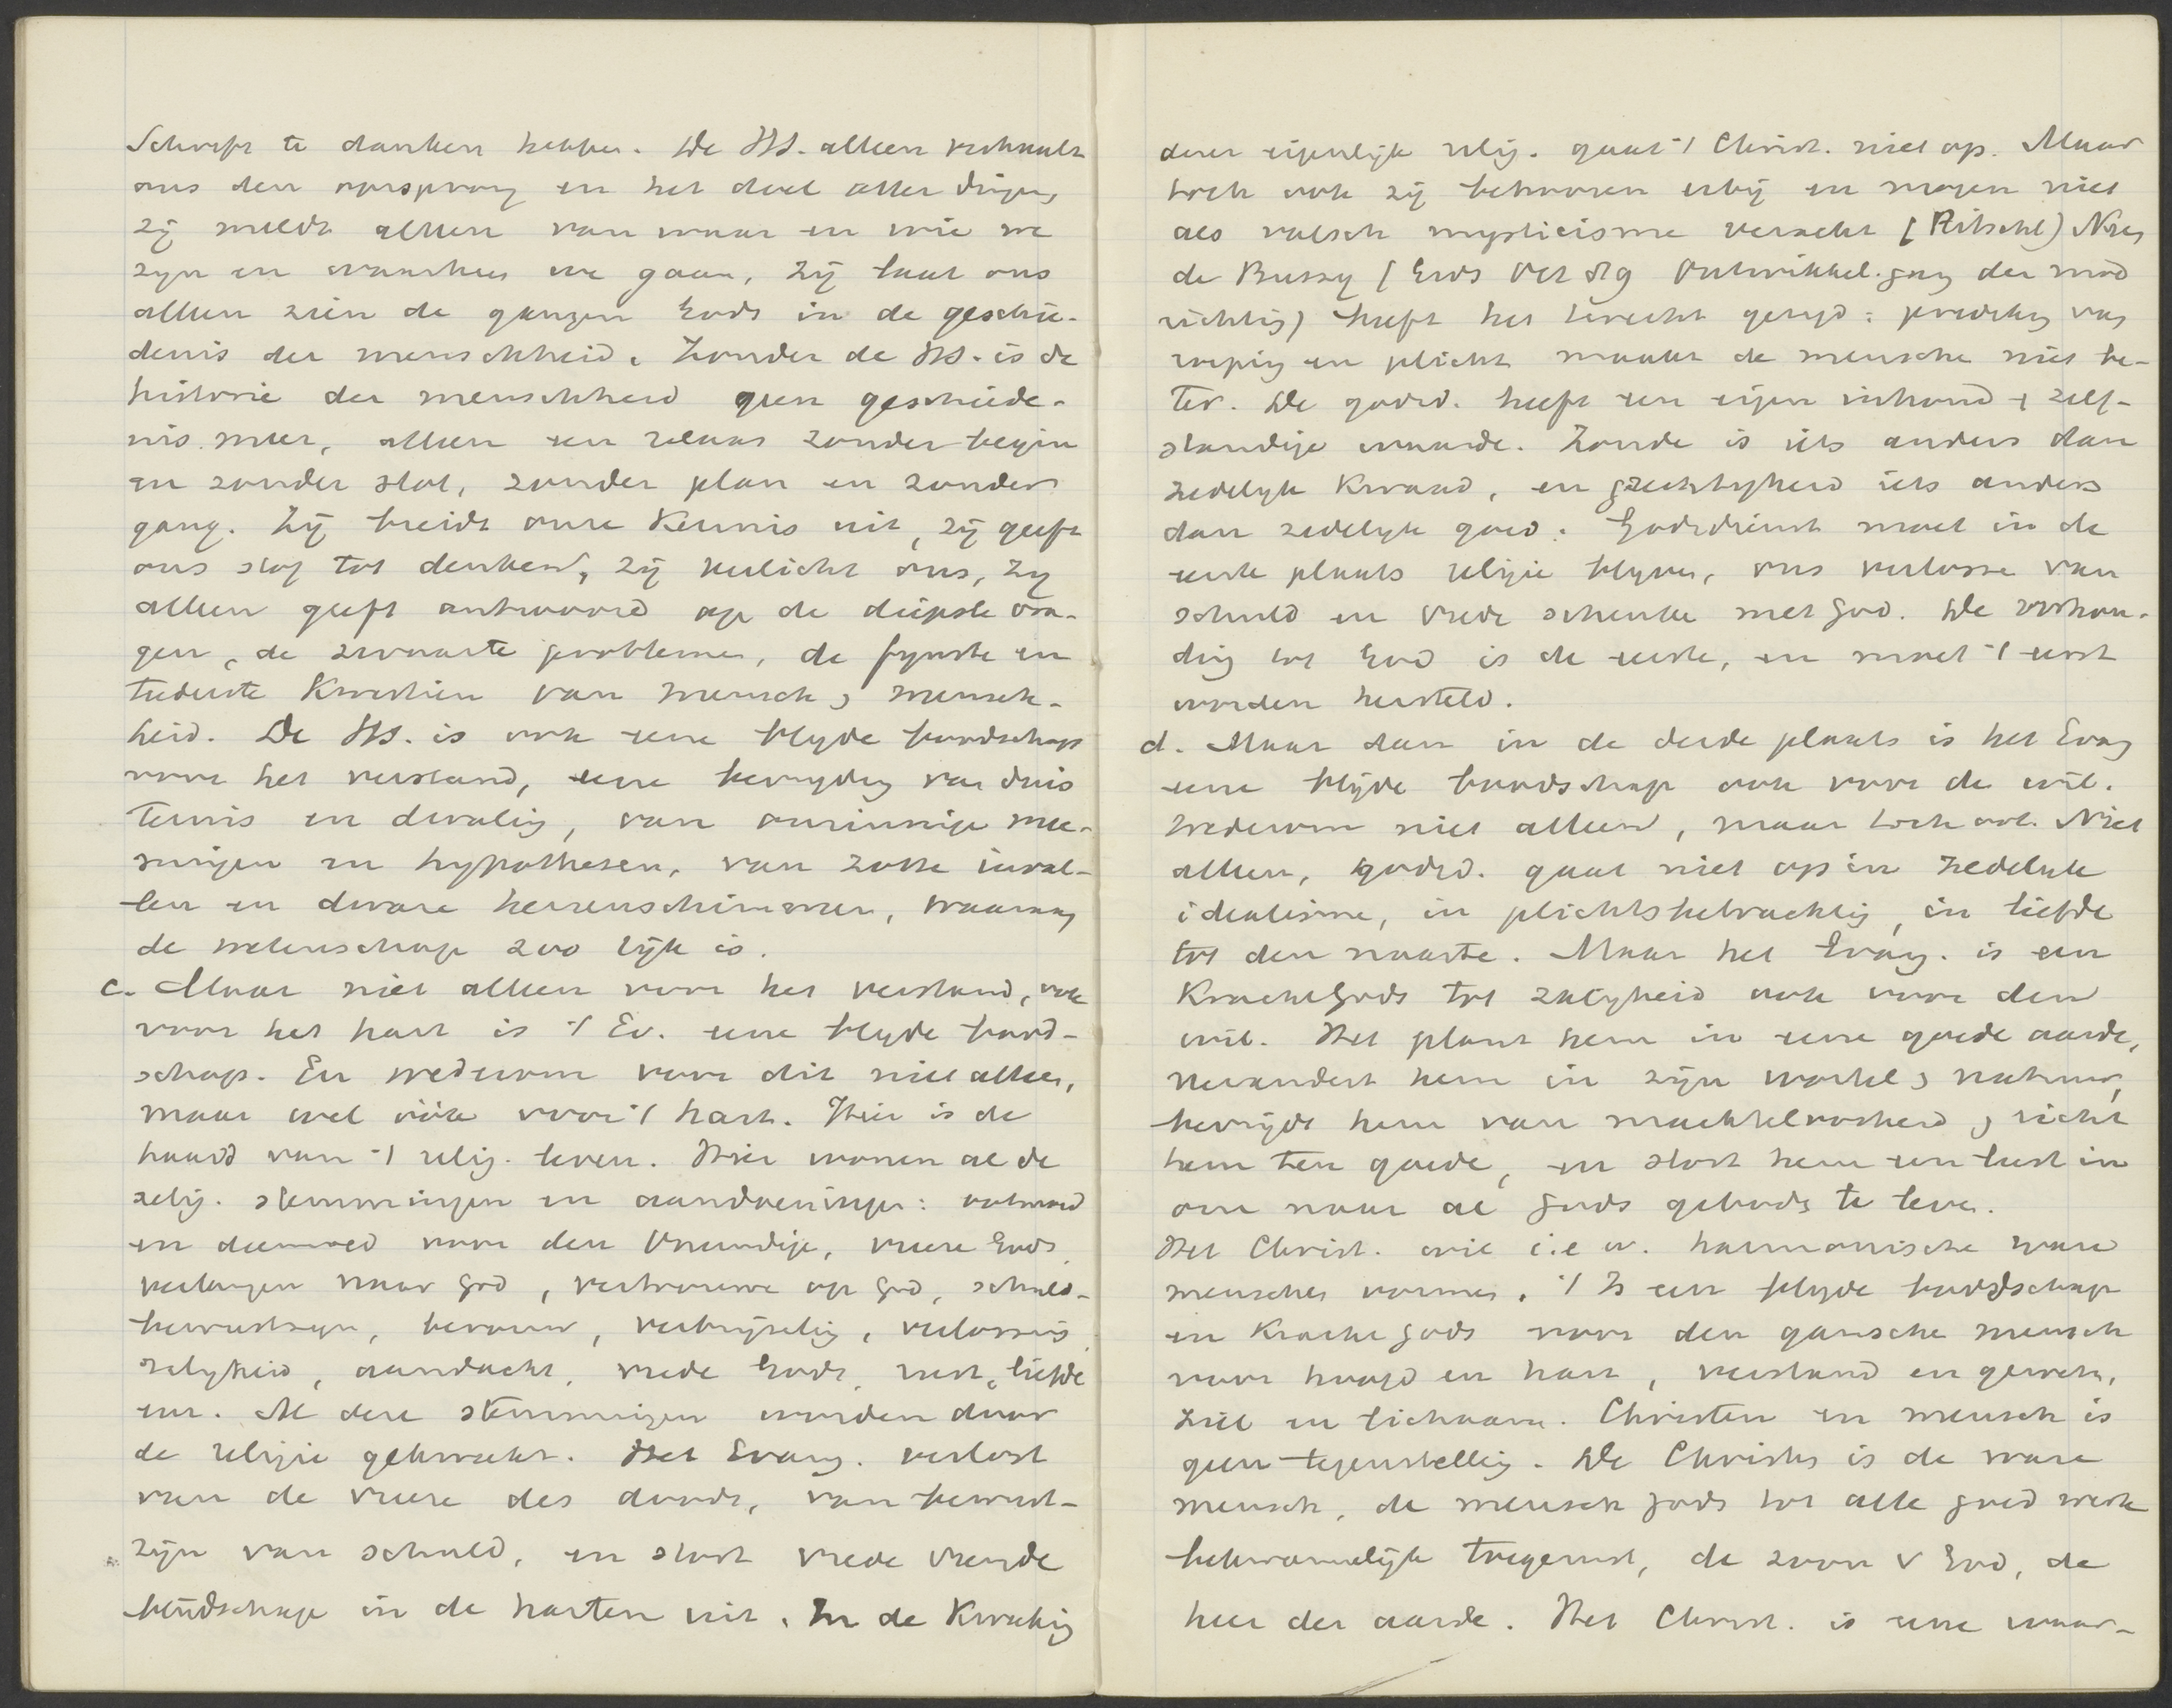 Schrift te danken hebben. De HS. alleen verhaalt
ons den oorsprong en het doel aller dingen,
zij meldt alleen van waar en wie we
zijn en waarheen we gaan, zij laat ons
alleen zien de gangen Gods in de geschie-
denis der menschheid. Zonder de HS. is de
historie der menschheid geen geschiede-
nis meer, alleen een relaas zonder begin
en zonder slot, zonder plan en zonder
gang. Zij breidt onze kennis uit, zij geeft
ons stof tot denken, zij verlicht ons, zy
alleen geeft antwoord op de diepste vra-
gen, de zwaarste problemen, de fynste en
tederste kwestien van mensch en mensch-
heid. De HS. is ook eene blyde boodschap
voor het verstand, eene bevryding van duis
ternis en dwaling, van onzinnige mee-
ningen en hypothesen, van zotte inval-
len en dwaze hersenschimmen, waaraan
de wetenschap zoo rijk is.
c. Maar niet alleen voor het verstand, ook
voor het hart is 't Ev. eene blyde bood-
schap. En wederom voor dit niet alleen,
maar wel óók voor 't hart. Hier is de
haard van 't relig. leven. Hier wonen al de
relig. stemmingen en aandoeningen: ootmoed
en deemoed voor den Oneindige, vreeze Gods,
verlangen naar God, vertrouwen op God, schuld-
bewustzyn, berouw, verbrijzeling, verlossing,
zaligheid, aandacht, vrede Gods, rust, liefde
enz. Al deze stemmingen worden door
de religie gekweekt. Het Evang. verlost
van de vreeze des doods, van bewust-
zijn van schuld, en stort vrede vreugde
blijdschap in de harten uit. In de kweeking
dezer eigenlijke relig. gaat 't Christ. niet op. Maar
toch ook zij behooren erbij en mogen niet
als valsch mysticisme veracht (Ritschl) Neen
de Bussy (Gids Oct 89 Ontwikkel.gang der mod
richting) heeft het terecht gezegd: prediking van
roeping en plicht maakt de menschen niet be-
ter. De godsd. heeft een eigen inhoud & zelf-
standige waarde. Zonde is iets anders dan
zedelyk kwaad, en gerechtigheid iets anders
dan zedelyk goed. Godsdienst moet in de
eerste plaats religie blyven, ons verlossen van
schuld en vrede schenken met God. De verhou-
ding tot God is de eerste, en moet 't eerst
worden hersteld.
d. Maar dan in de derde plaats is het Evang
eene blijde boodschap ook voor de wil.
Wederom niet alleen, maar toch ook. Niet
alleen, godsd. gaat niet op in zedelyk
idealisme, in plichtsbetrachting, in liefde
tot den naaste. Maar het Evang. is een
Kracht Gods tot zaligheid ook voor den
wil. Het plant hem in eene goede aarde,
verandert hem in zijn wortel en natuur,
bevrijdt hem van machteloosheid en richt
hem ten goede, en stort hem een lust in
om naar al Gods geboden te leven.
Het Christ. wil i.e.w. harmonische ware
menschen vormen. 't Is een blyde boodschap
en Kracht Gods voor den ganschen mensch
voor hoofd en hart, verstand en geweten,
ziel en lichaam. Christen en mensch is
geen tegenstelling. De Christen is de ware
mensch, de mensch Gods tot alle goed werk
bekwamelijk toegerust, de zoon v God, de
heer der aarde. Het Christ. is eene waar-